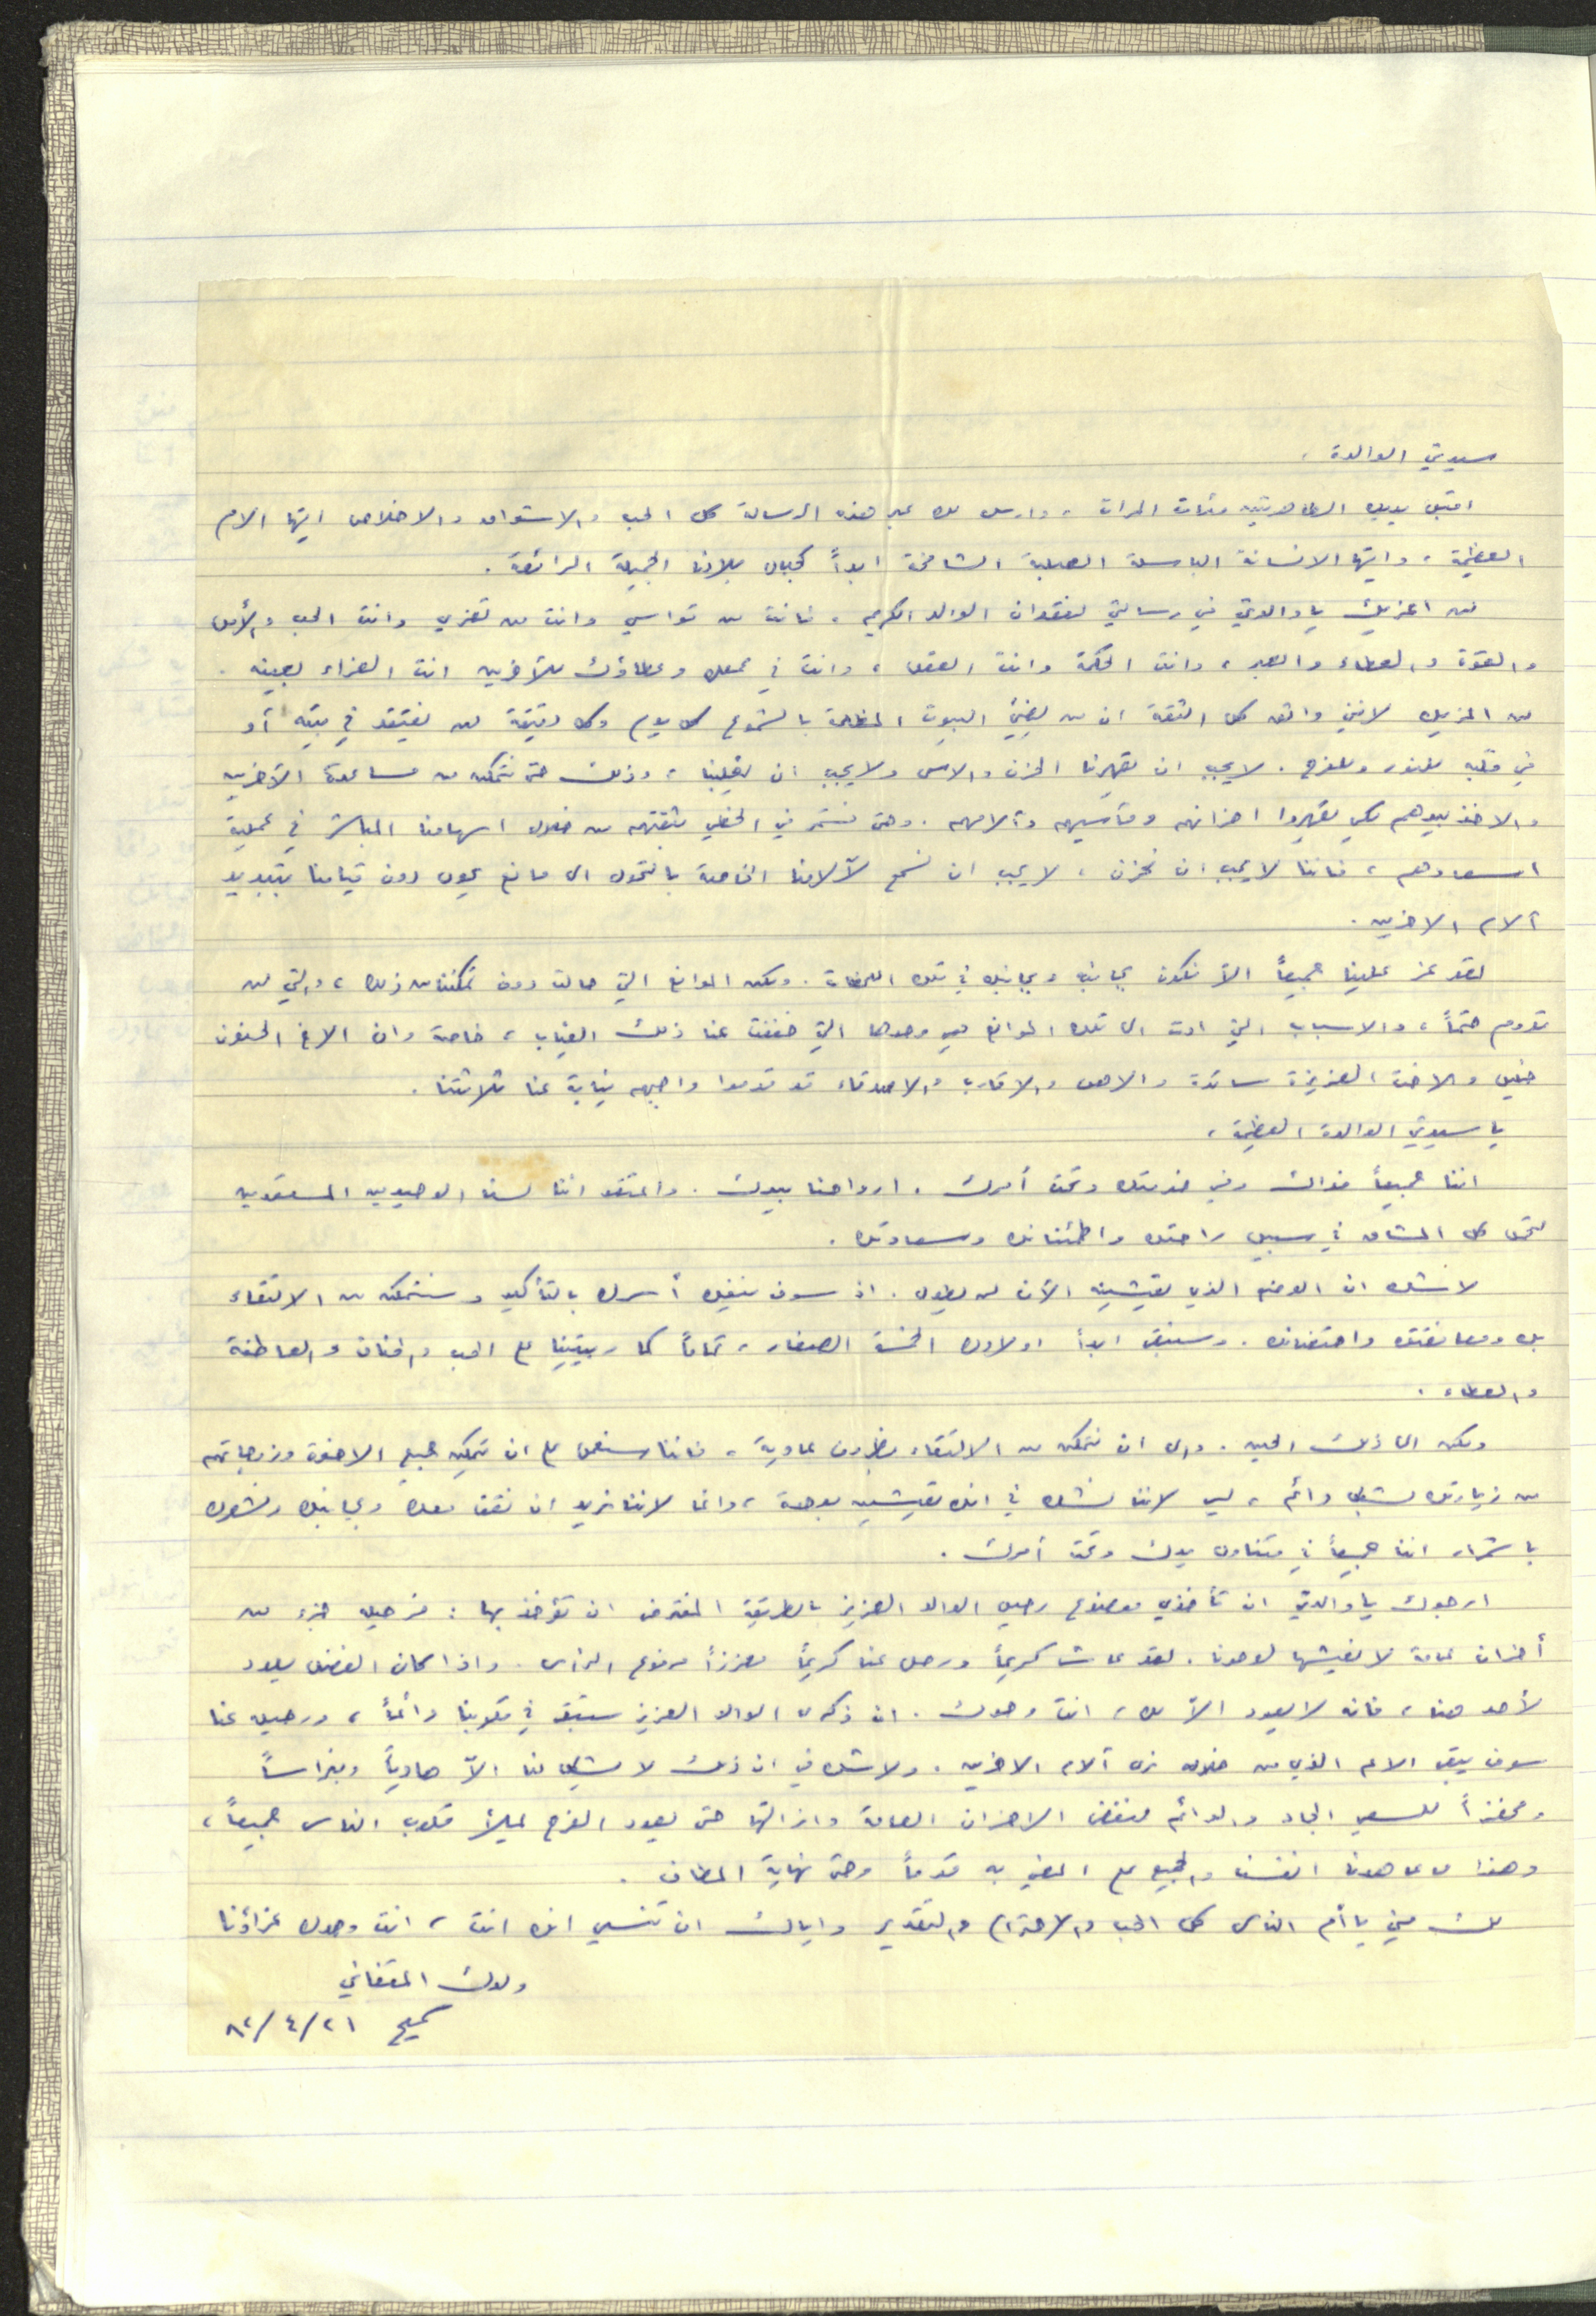 سيدتي الوالدة ،
اقبل يديك الطاهرتين مئات المرات ، وارسل لك عبر هذه الرسالة كل الحب والاشواق والاخلاص ايتها الام
العظيمة ، وايتها الانسانة الباسلة الصلبة الشامخة ابداً كجبال بلادنا الجميلة الرائعة .
لن اعزيك يا والدتي في رسالتي لفقدان الوالد الكريم ، فانت من تواسي وانت من تعزي وانت الحب والأمل
والقوة والعطاء والصبر ، وانت الحكمة وانت العقل ، وانت في عملك وعطاؤك للآخرين انت العزاء بعينه .
لن اعزيك لانني واثق كل الثقة ان من يضيئ البيوت المظلمة بالشموع كل يوم وكل دقيقة لن يفتقد في بيته أو
في قلبه للنور وللفرح . لا يجب ان يقهرنا الحزن والاسى ولا يجب ان يغلبنا ، وذلك حتى نتمكن من مساعدة الآخرين
والاخذ بيدهم لكي يقهروا احزانهم ومآسيهم وآلامهم . وحتى نستمر في الحظي بثقتهم من خلال اسهامنا المباشر في عملية
اسعادهم ، فاننا لا يجب ان نحزن ، لا يجب ان نسمح لآلامنا الخاصة بالتحول الى مانع يحول دون قيامنا بتبديد
آلام الاخرين .
لقد عز علينا جميعاً الاّ نكون بجانبه وبجانبك في تلك اللحظات . ولكن الموانع التي حالت دون تمكننا من ذلك ، والتي لن
تدوم حتماً ، والاسباب التي ادت الى تلك الموانع هي وحدها التي خففت عنا ذلك الغياب ، خاصة وان الاخ الحنون
خليل والاخت العزيزة ساندة والاهل والاقارب والاصدقاء قد قدموا واجبهم نيابة عنا ثلاثتنا .
يا سيدتي الوالدة العظيمة ،
اننا جميعاً فداك وفي خدمتك وتحت أمرك . ارواحنا بيدك . واعتقد اننا لسنا الوحيدين المستعدين
لتحمل كل المشاق في سبيل راحتك واطمئنانك وسعادتك .
لا شك ان الوضع الذي تعيشينه الآن لن يطول . اذ سوف يفك أسرك بالتأكيد وسنتمكن من الالتقاء
بك ومعانقتك واحتضانك . وسنبقى ابداً اولادك الخمسة الصغار ، تماماً كما ربيتينا على الحب والحنان والعاطفة
والعطاء .
ولكن الى ذلك الحين . والى ان نتمكن من الالتقاء بظروف عادية ، فاننا سنعمل على ان يتمكن جميع الاخوة وزوجاتهم
من زيارتك بشكل دائم ، ليس لاننا نشك في انك تعيشين بوحدة ، وانما لاننا نريد ان نقف معك وبجانبك ونشعرك
باستمرار اننا جميعاً في متناول يدك وتحت أمرك .
ارجوك يا والدتي ان تأخذي موضوع رحيل الوالد العزيز بالطريقة المفترض ان تؤخذ بها : فرحيله جزء من
أحزان عامة لا نعيشها لوحدنا . لقد عاش كريماً ورحل عنا كريماً معززاً مرفوع الرأس . واذا كان الفضل يعود
لأحد هنا ، فانه لا يعود الاّ لك ، انت وحدك . ان ذكرى الوالد العزيز ستبقى في قلوبنا دائماً ، ورحيله عنا
سوف يبقى الالم الذي من خلاله نرى آلام الاخرين . ولا شك في ان ذلك لا يشكل لنا الاّ هادياً ونبراساً
ومحفزاً للسعي الجاد والدائم لنفض الاحزان العامة وازالتها حتى يعود الفرح ليملأ قلوب الناس جميعاً ،
وهذا ما عاهدنا انفسنا والجميع على المضي به قدماً وحتى نهاية المطاف .
لك مني يا أم الناس كل الحب والاحترام والتقدير واياك ان تنسي انك انت ، انت وحدك عزاؤنا
ولدك المتفاني
سميح ٢١/٤/٨٢